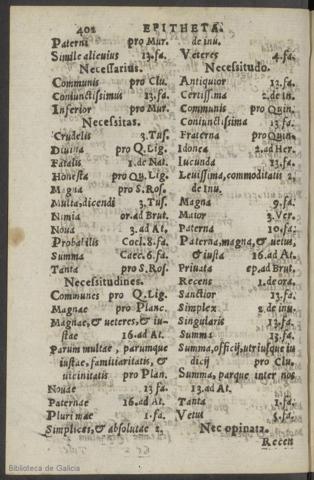 402 EPITHETA.
Paterni pro Mur.
Simile alicuius 13.fa.
Necessarius.
Communis pro Clu.
Coniunctissimus 13.fa.
Inferior pro Mur.
Necessitas.
Crudelis 3.Tus.
Diuina pro Q.Lig.
Fatalis 1.de Nat.
Honesta pro Qu.Lig.
Magna pro S.Ros.
Multa, dicendi 3.Tus.
Nimia or.ad Brut.
Noua 3.ad At.
Probabilis Coel.8.fa.
Summa Caec.6.fa.
Tanta pro S.Ros.
Necessitudines.
Communes pro Q.Lig.
Magnae pro Planc.
Magnae, & veteres, & iu-
stae 16.ad At.
Parum multae, parumque
iustae, familiaritatis, &
vicinitatis pro Plan.
Nouae 13 fa.
Paternae 16.ad At.
Plurimae 1.fa.
Simplices, & absolutae 2.
de inu.
Veteres 4.fa.
Necessitudo.
Antiquior 12.fa.
Certissima 2.de in.
Communis pro Quin.
Coniunctissima 13.fa.
Fraterna pro Quin.
Idonea 2.ad Her.
Iucunda 13.fa.
Leuissima, commoditatis 2.
de Inu.
Magna 9.fa.
Maior 3.Ver.
Paterna 10.fa.
Paterna, magna, & vetus,
& iusta 16.ad At.
Priuata ep.ad Brut.
Recens 1.de ora.
Sanctior 13.fa.
Simplex 2.de inu.
Singularis 13.fa.
Summa 13.fa.
Summa, officij, utriusque iu
dicij pro Clu.
Summa, parque inter nos
13.ad At.
Tanta 1.fa.
Vetus 5.fa.
Nec opinata.
Recen
Biblioteca de Galicia